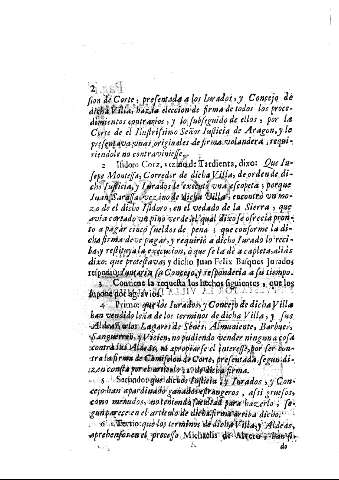 2
sion de Corte, presentada a los Iurados, y Consejo de
dicha Villa, hazia eleccion de firma de todos los proce-
dimientos contrarios, y lo subseguido de ellos, por la
Corte de el Ilustrissimo Señor Iusticia de Aragon, y le
presentava una original de firma volandera, requi-
riendole no contraviniesse.
2 Isidoro Corz, vezino de Tardienta, dixo: Que Iu-
sepe Montessa, Corredor de dicha Villa, de orden de di-
cho Iusticia, y Iurados le executò una escopeta; porque
Iuan Sarassa vezino de dicha Villa, encontrò un mo-
zo de el dicho Isidoro, en el vedado de la Sierra, que
avia cortado un pino verde, el qual dixo se ofrecia pron-
to a pagar cinco sueldos de pena; que conforme la di-
cha firma deve pagar, y requiriò a dicho Iurado lo reci-
ba, y restituya la execucion, o que se la dè a capleta, aliàs
dixo: que protestava; y dicho Juan Felix Basques Jurados
respondiò Juntaria su Consejo, y responderia a su tiempo.
3 Contiene la requesta los hechos siguientes, que los
supone por agravios.
4 Primò: que los Iurados, y Consejo de dicha Villa
han vendido leña de los terminos de dicha Villa, y sus
Aldeas, a los Lugares de
Sangarren, y Vicien, no pudiendo vender ninguna cosa
contra sus Aldeas, ni apropiarse el interesse, por ser con-
tra la firma de Comission de Corte, presentada, segun di-
zen consta por el articulo de dicha firma.
5 Secundò: que dichos Iusticia, y Iurados, y Con-
cejo han apardinado ganados estrangeros, assi gruesos,
como menudos, no teniendo facultad para hazerlo, se-
gun parece en el articulo de dicha firma arriba dicho.
6 Tertiò: que los terminos de dicha Villa, y Aldeas,
aprehensos en el processo Michaelis de
do